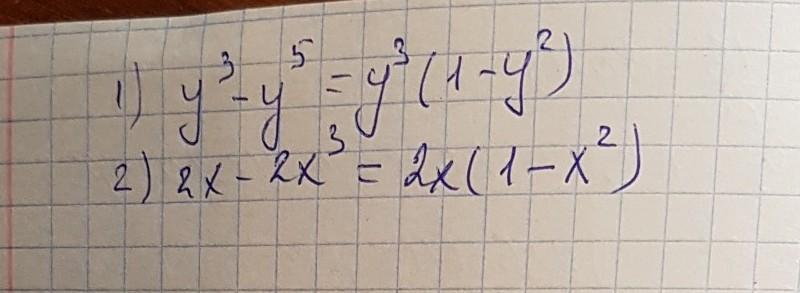 1) y³-y⁵=y³(1-y²)
2) 2x-2x³=2x(1-x²)